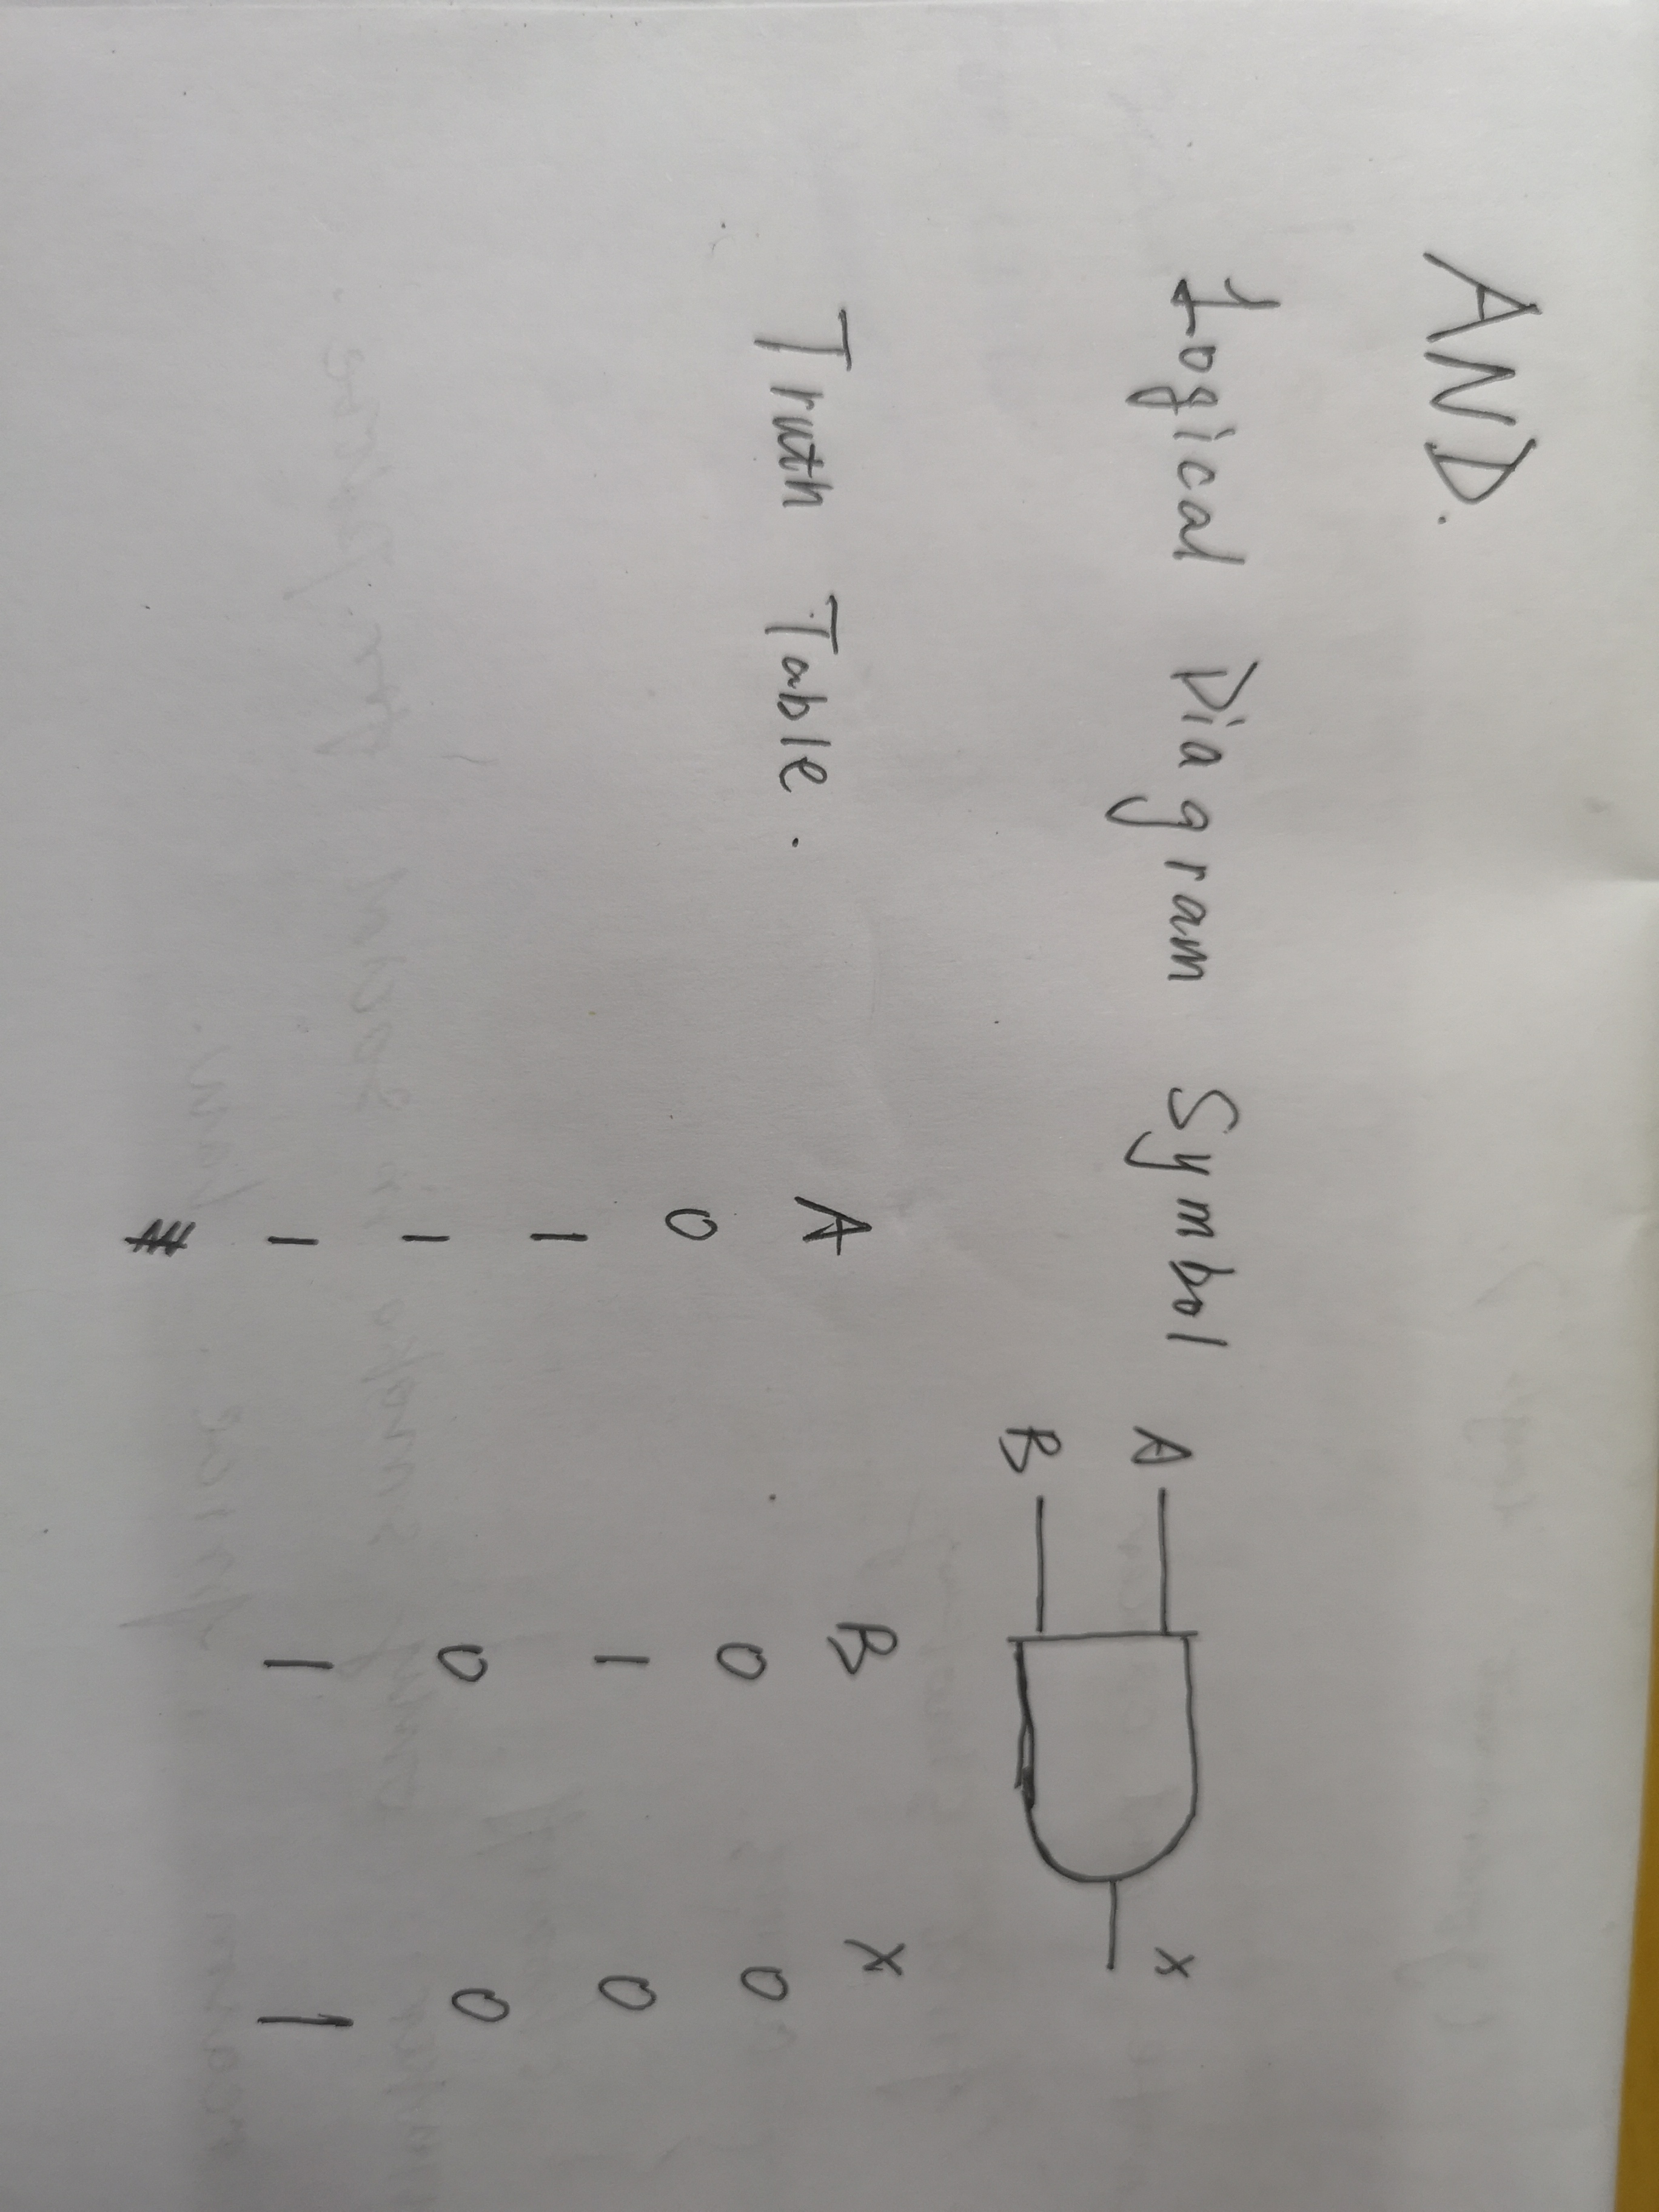 AND.
Logical Diagram Symbol A B X
Truth Table. A B X
0 0 0
1 1 0
1 0 0
1 1 1